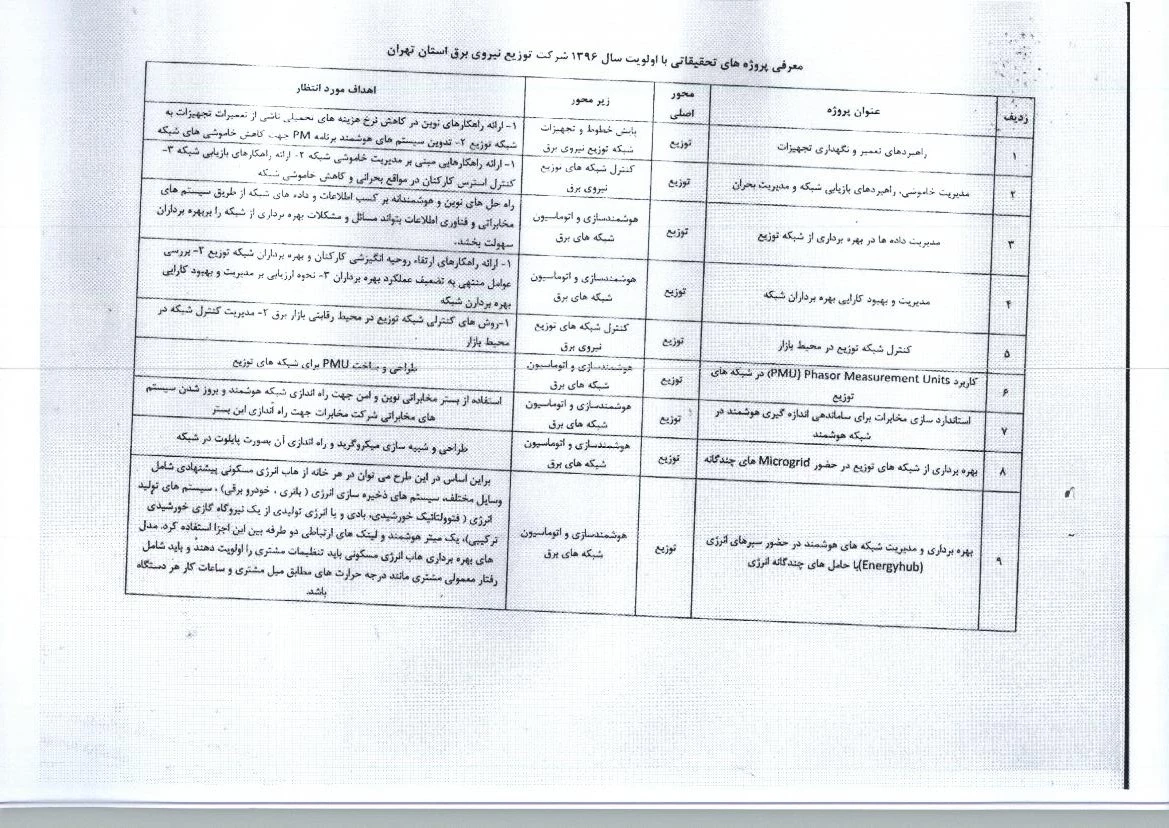 معرفی پروژه های تحقیقاتی با اولویت سال ۱۳۹۶ شرکت توزیع نیروی برق استان تهران
ردیف
عنوان پروژه
محور
اصلی
زیر محور
اهداف مورد انتظار
۱
راهبردهای تعمیر و نگهداری تجهیزات
توزیع
پایش خطوط و تجهیزات
شبکه توزیع نیروی برق
۱- ارائه راهکارهای نوین در کاهش نرخ هزینه های تحمیلی ناشی از تعمیرات تجهیزات به
شبکه توزیع ۲- تدوین سیستم های هوشمند برنامه PM جهت کاهش خاموشی های شبکه
۲
مدیریت خاموشی، راهبردهای بازیابی شبکه و مدیریت بحران
توزیع
کنترل شبکه های توزیع
نیروی برق
۱- ارائه راهکارهایی مبنی بر مدیریت خاموشی شبکه ۲- ارائه راهکارهای بازیابی شبکه ۳-
کنترل استرس کارکنان در مواقع بحرانی و کاهش خاموشی شبکه
۳
مدیریت داده ها در بهره برداری از شبکه توزیع
توزیع
هوشمندسازی و اتوماسیون
شبکه های برق
راه حل های نوین و هوشمندانه بر کسب اطلاعات و داده های شبکه از طریق سیستم های
مخابراتی و فناوری اطلاعات بتواند مسائل و مشکلات بهره برداری از شبکه را بربهره برداران
سهولت بخشد.
۴
مدیریت و بهبود کارایی بهره برداران شبکه
توزیع
هوشمندسازی و اتوماسیون
شبکه های برق
۱- ارائه راهکارهای ارتقاء روحیه انگیزشی کارکنان و بهره برداران شبکه توزیع ۲- بررسی
عوامل منتهی به تضعیف عملکرد بهره برداران ۳- نحوه ارزیابی بر مدیریت و بهبود کارایی
بهره بردارن شبکه
۵
کنترل شبکه توزیع در محیط بازار
توزیع
کنترل شبکه های توزیع
نیروی برق
۱-روش های کنترلی شبکه توزیع در محیط رقابتی بازار برق ۲- مدیریت کنترل شبکه در
محیط بازار
۶
کاربرد Phasor Measurement Units (PMU) در شبکه های
توزیع
توزیع
هوشمندسازی و اتوماسیون
شبکه های برق
طراحی و ساخت PMU برای شبکه های توزیع
۷
استاندارد سازی مخابرات برای ساماندهی اندازه گیری هوشمند در
شبکه هوشمند
توزیع
هوشمندسازی و اتوماسیون
شبکه های برق
استفاده از بستر مخابراتی نوین و امن جهت راه اندازی شبکه هوشمند و بروز شدن سیستم
های مخابراتی شرکت مخابرات جهت راه اندازی این بستر
۸
بهره برداری از شبکه های توزیع در حضور Microgrid های چندگانه
توزیع
هوشمندسازی و اتوماسیون
شبکه های برق
طراحی و شبیه سازی میکروگرید و راه اندازی آن بصورت پایلوت در شبکه
۹
بهره برداری و مدیریت شبکه های هوشمند در حضور سبرهای انرژی
(Energyhub)با حامل های چندگانه انرژی
توزیع
هوشمندسازی و اتوماسیون
شبکه های برق
براین اساس در این طرح می توان در هر خانه از هاب انرژی مسکونی پیشنهادی شامل
وسایل مختلف، سیستم های ذخیره سازی انرژی ( باتری ، خودرو برقی) ، سیستم های تولید
انرژی ( فتوولتائیک خورشیدی، بادی و یا انرژی تولیدی از یک نیروگاه گازی خورشیدی
ترکیبی)، یک میتر هوشمند و لینک های ارتباطی دو طرفه بین این اجزا استفاده کرد. مدل
های بهره برداری هاب انرژی مسکونی باید تنظیمات مشتری را اولویت دهند و باید شامل
رفتار معمولی مشتری مانند درجه حرارت های مطابق میل مشتری و ساعات کار هر دستگاه
باشد.